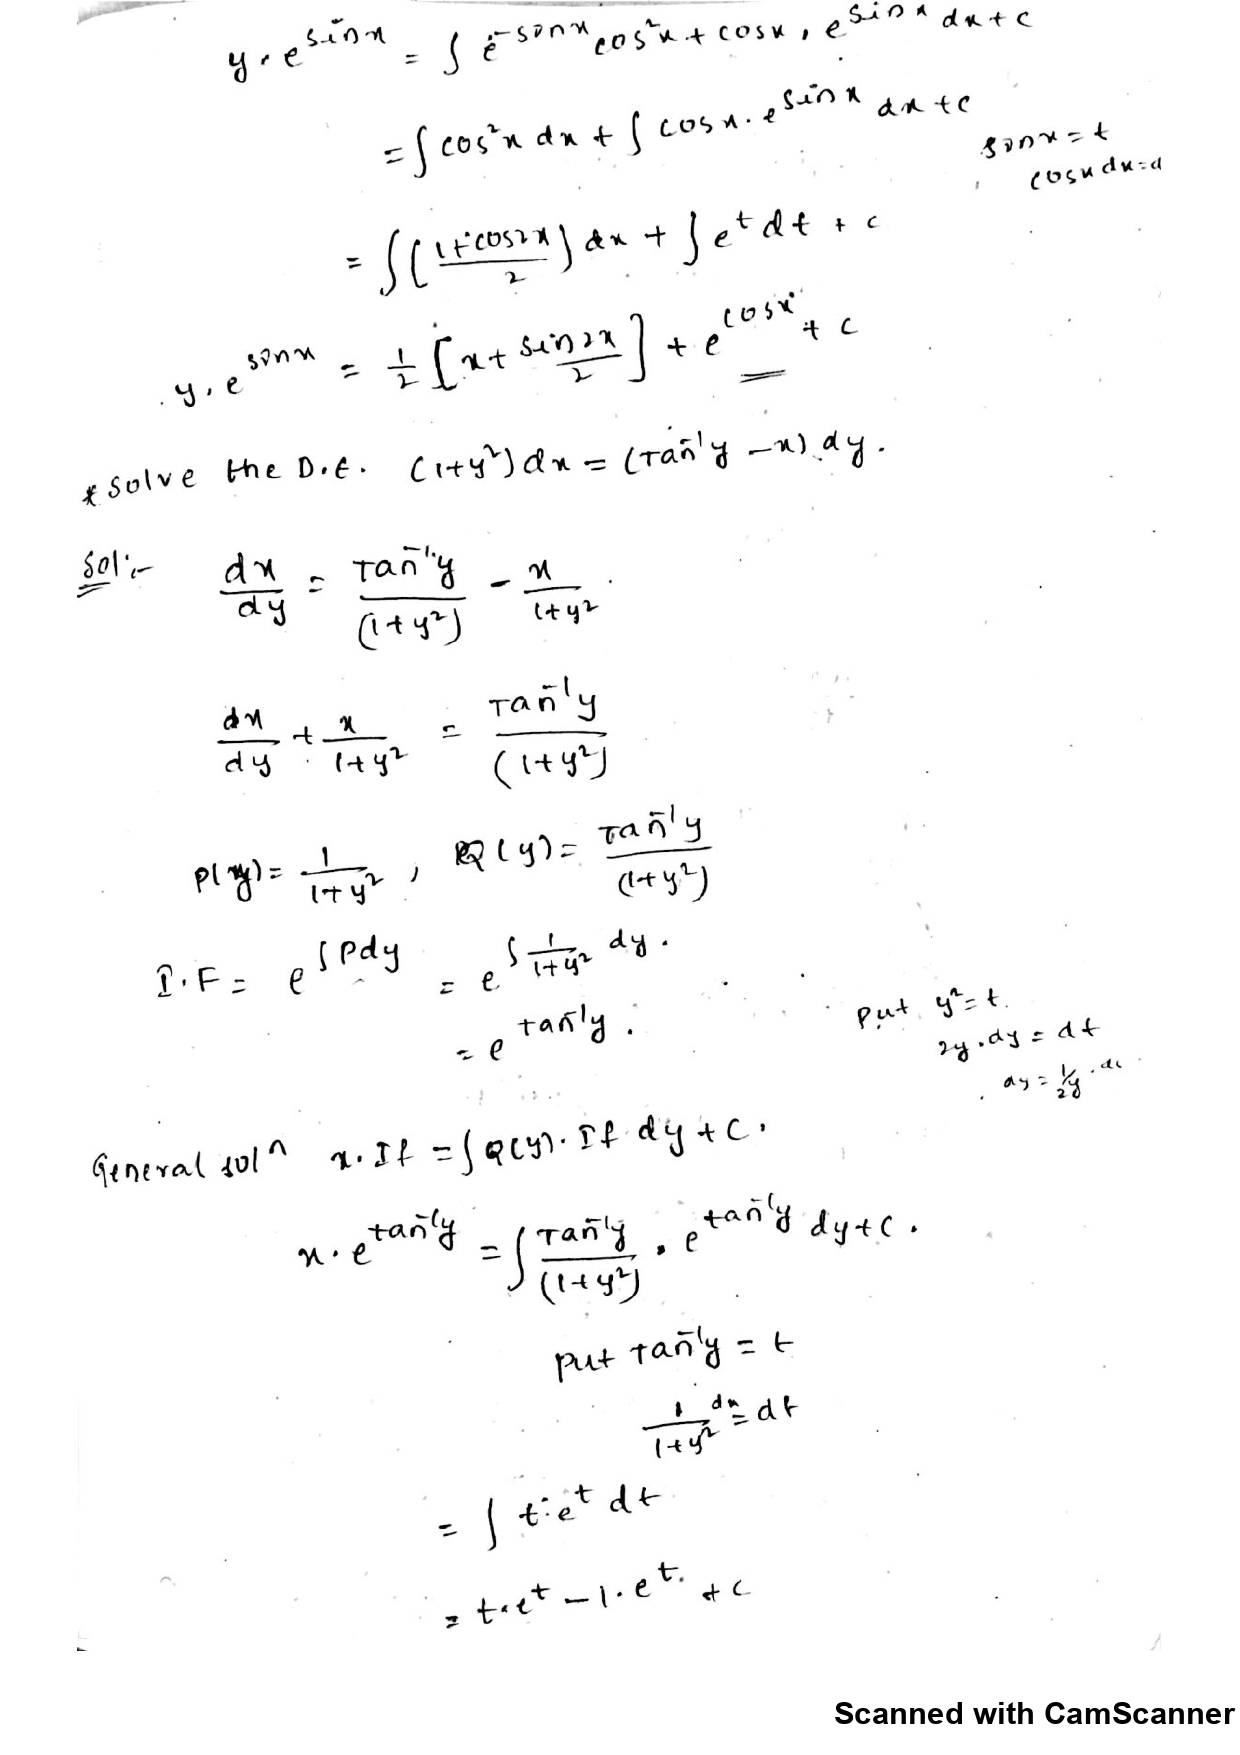 y.e^sinx = ∫ e^-sinx cos²x + cosx . e^sinx dx + c
= ∫ cos²x dx + ∫ cosx . e^sinx dx + c
sinx = t
cosx dx = d
= ∫ ((1+cos2x)/2) dx + ∫ e^t dt + c
y. e^sinx = 1/2 [x + sin2x/2] + e^cosx + c
* Solve the D.E. (1+y²) dx = (Tan⁻¹y - x) dy.
Sol:- dx/dy = Tan⁻¹y/(1+y²) - x/1+y²
dx/dy + x/1+y² = Tan⁻¹y/(1+y²)
P(y) = 1/1+y² , Q(y) = Tan⁻¹y/(1+y²)
I.F = e^∫Pdy = e^∫ 1/1+y² dy.
= e^tan⁻¹y .
Put y² = t.
2y.dy = dt
dy = 1/2y . dt
General solⁿ x. If = ∫ Q(y). If dy + c.
x. e^tan⁻¹y = ∫ Tan⁻¹y/(1+y²) . e^tan⁻¹y dy + c.
put Tan⁻¹y = t
1/1+y² dx = dt
= ∫ t.e^t dt
= t.e^t - 1.e^t. + c
Scanned with CamScanner